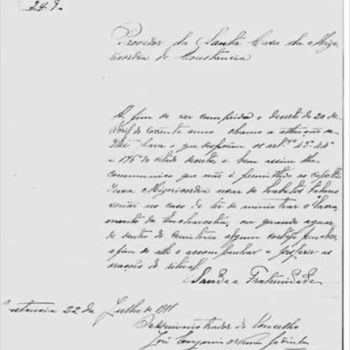 249.
Provedor da Santa Casa da Mize
ricordia de Constancia
A fim de ser cumprido o Decreto de 20 de
Abril do corrente anno chamo a attenção de
para o que dispõem os artos 43º 44º
e 176º do citado decreto, e bem assim lhe
communico que não é permittido ao capellão
d'essa Misericordia usar de habitos talares
senão no caso de ir ministrar o Sacra
mento da Eucharistia, ou quando aguarde
dentro do cemiterio algum cortejo funebre,
a fim de alli o acompanhar e proferir as
orações do ritual.
Saude e Fraternidade
Constancia 22 de Julho de 1911
O Administrador do Concelho
José